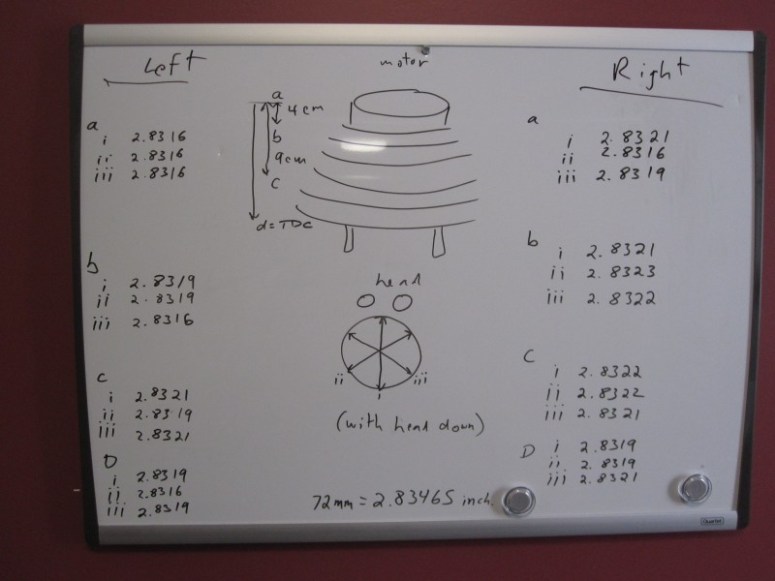 Left
a
i 2.8316
ii 2.8316
iii 2.8316
b
i 2.8319
ii 2.8319
iii 2.8316
c
i 2.8321
ii 2.8319
iii 2.8321
D
i 2.8319
ii. 2.8316
iii 2.8319
motor
a
4cm
b
9cm
c
d=TDC
head
ii iii
i
(with head down)
72mm = 2.83465 inch.
Right
a
i 2.8321
ii 2.8316
iii 2.8319
b
i 2.8321
ii 2.8323
iii 2.8322
C
i 2.8322
ii 2.8322
iii 2.8321
D
i 2.8319
ii 2.8319
iii 2.8321
Quartet